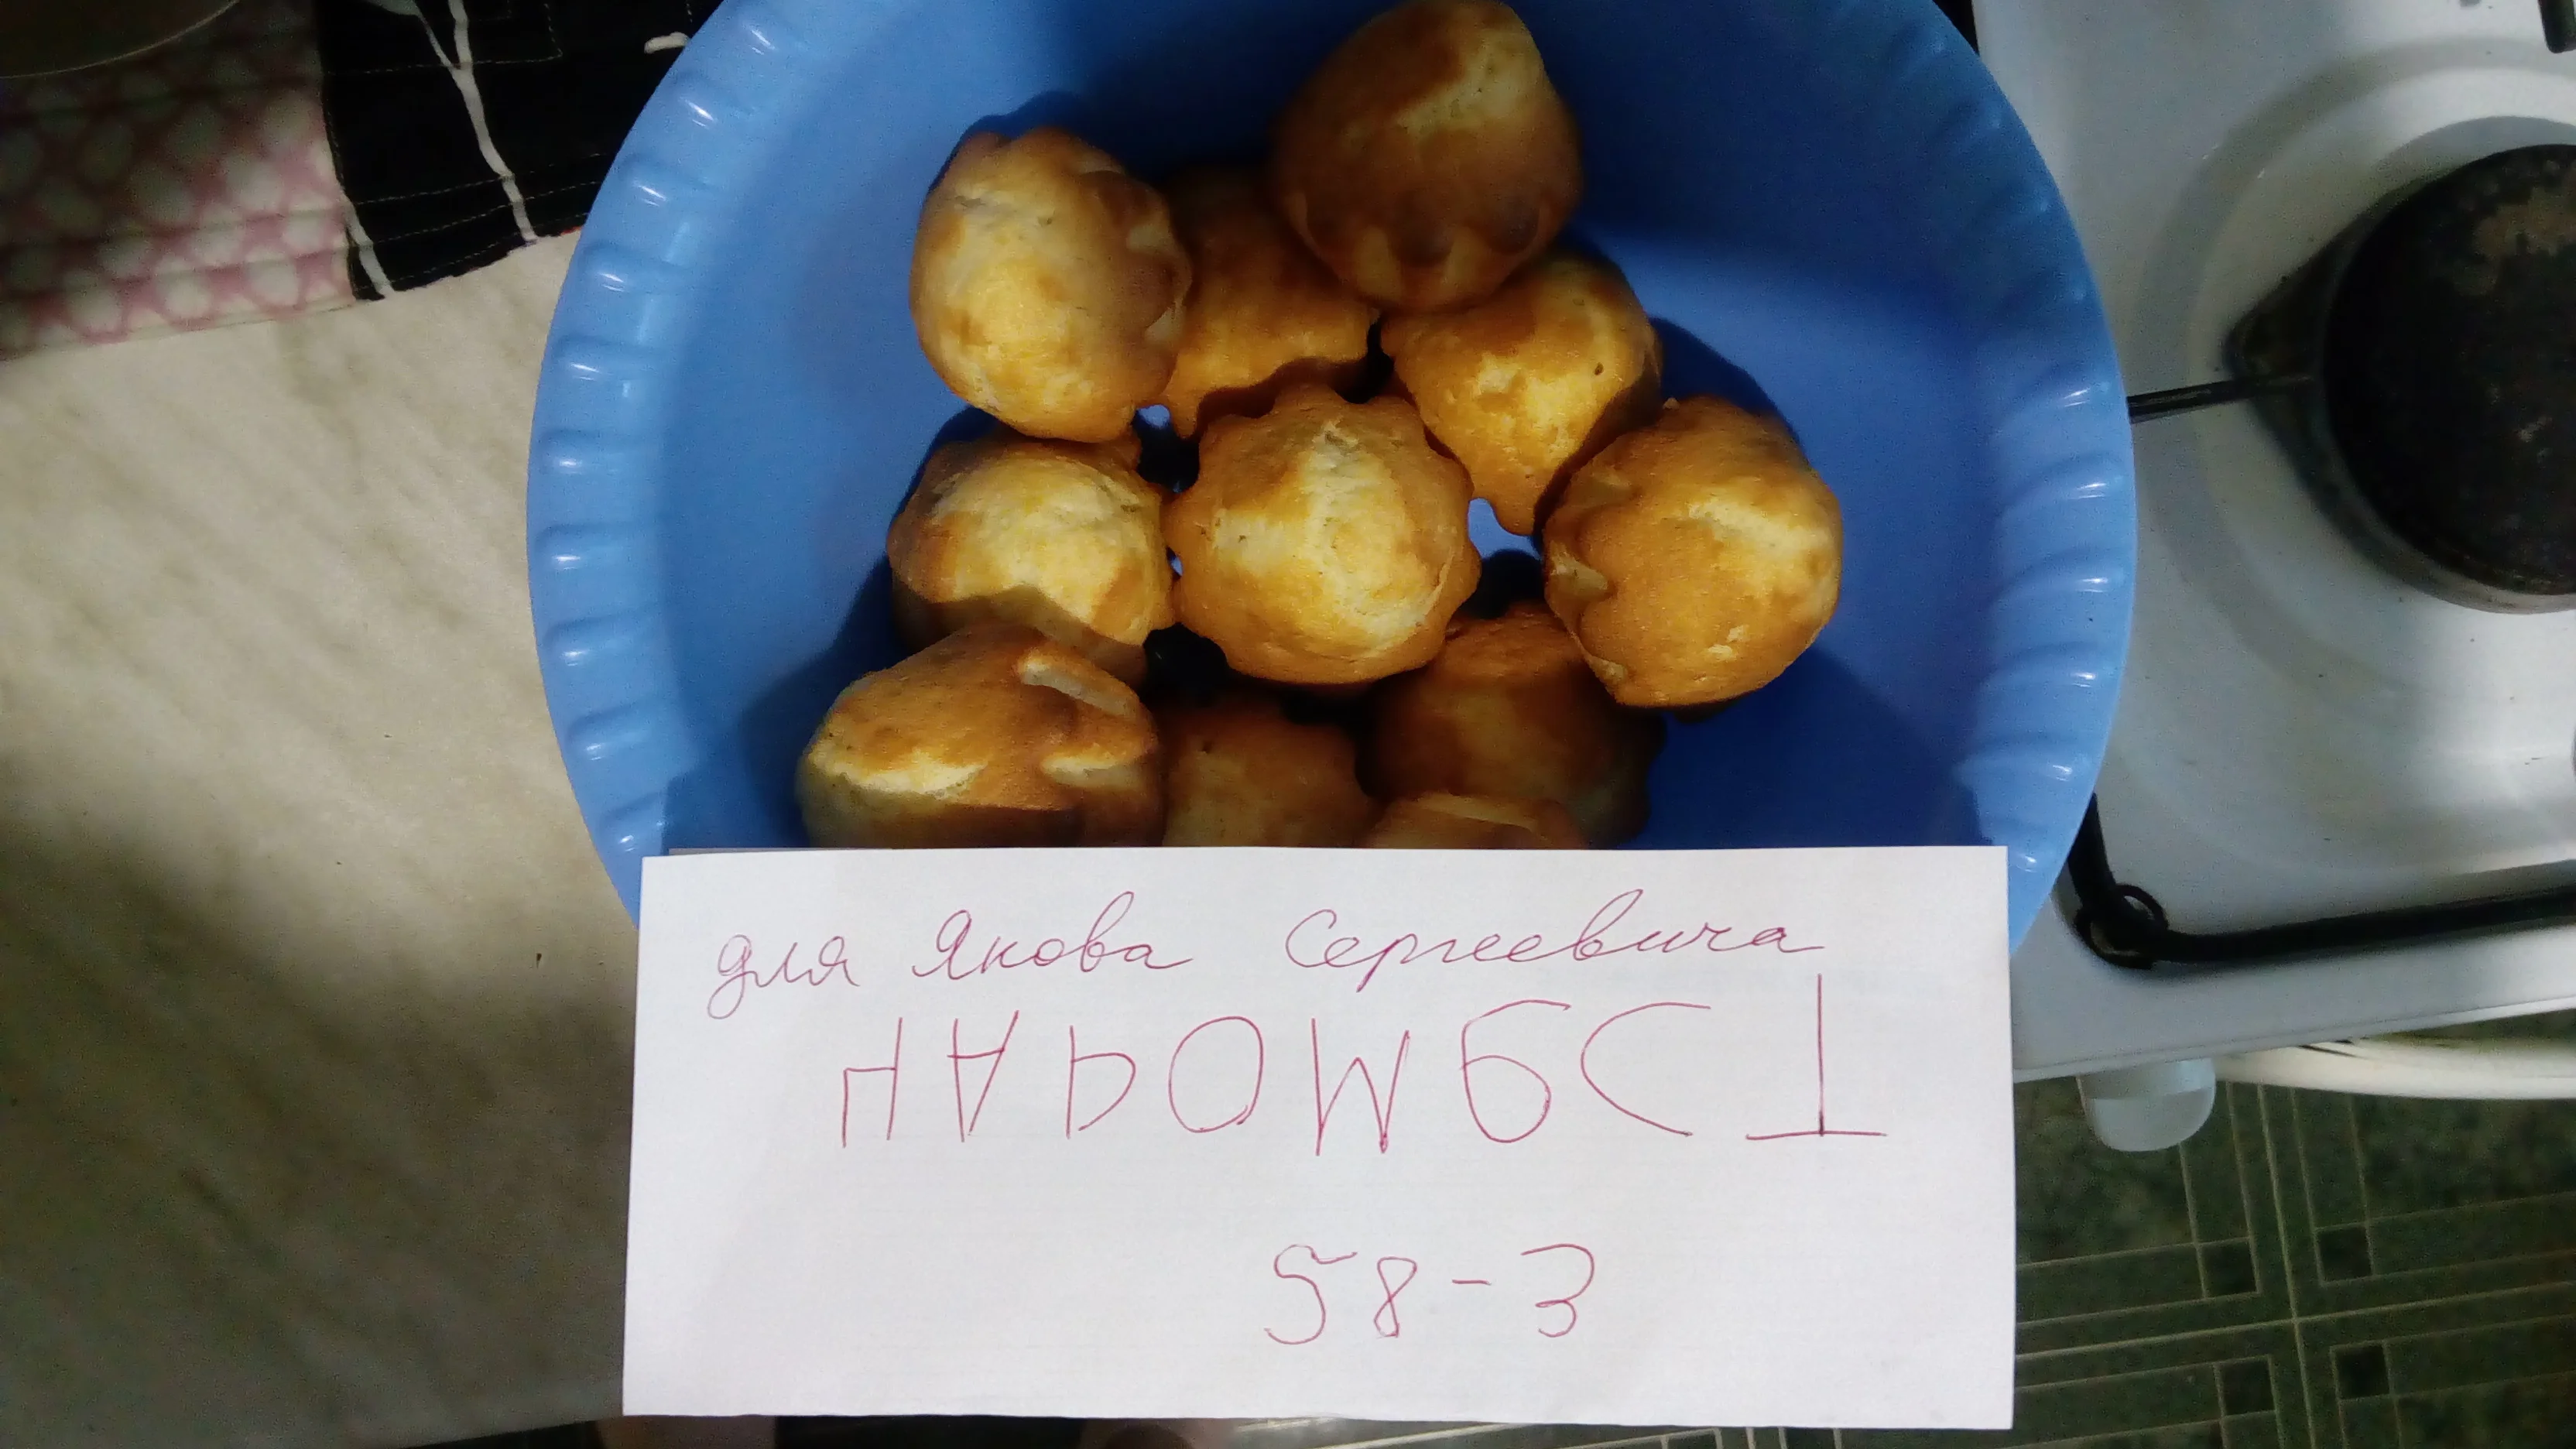 для Якова Сергеевича
58-3